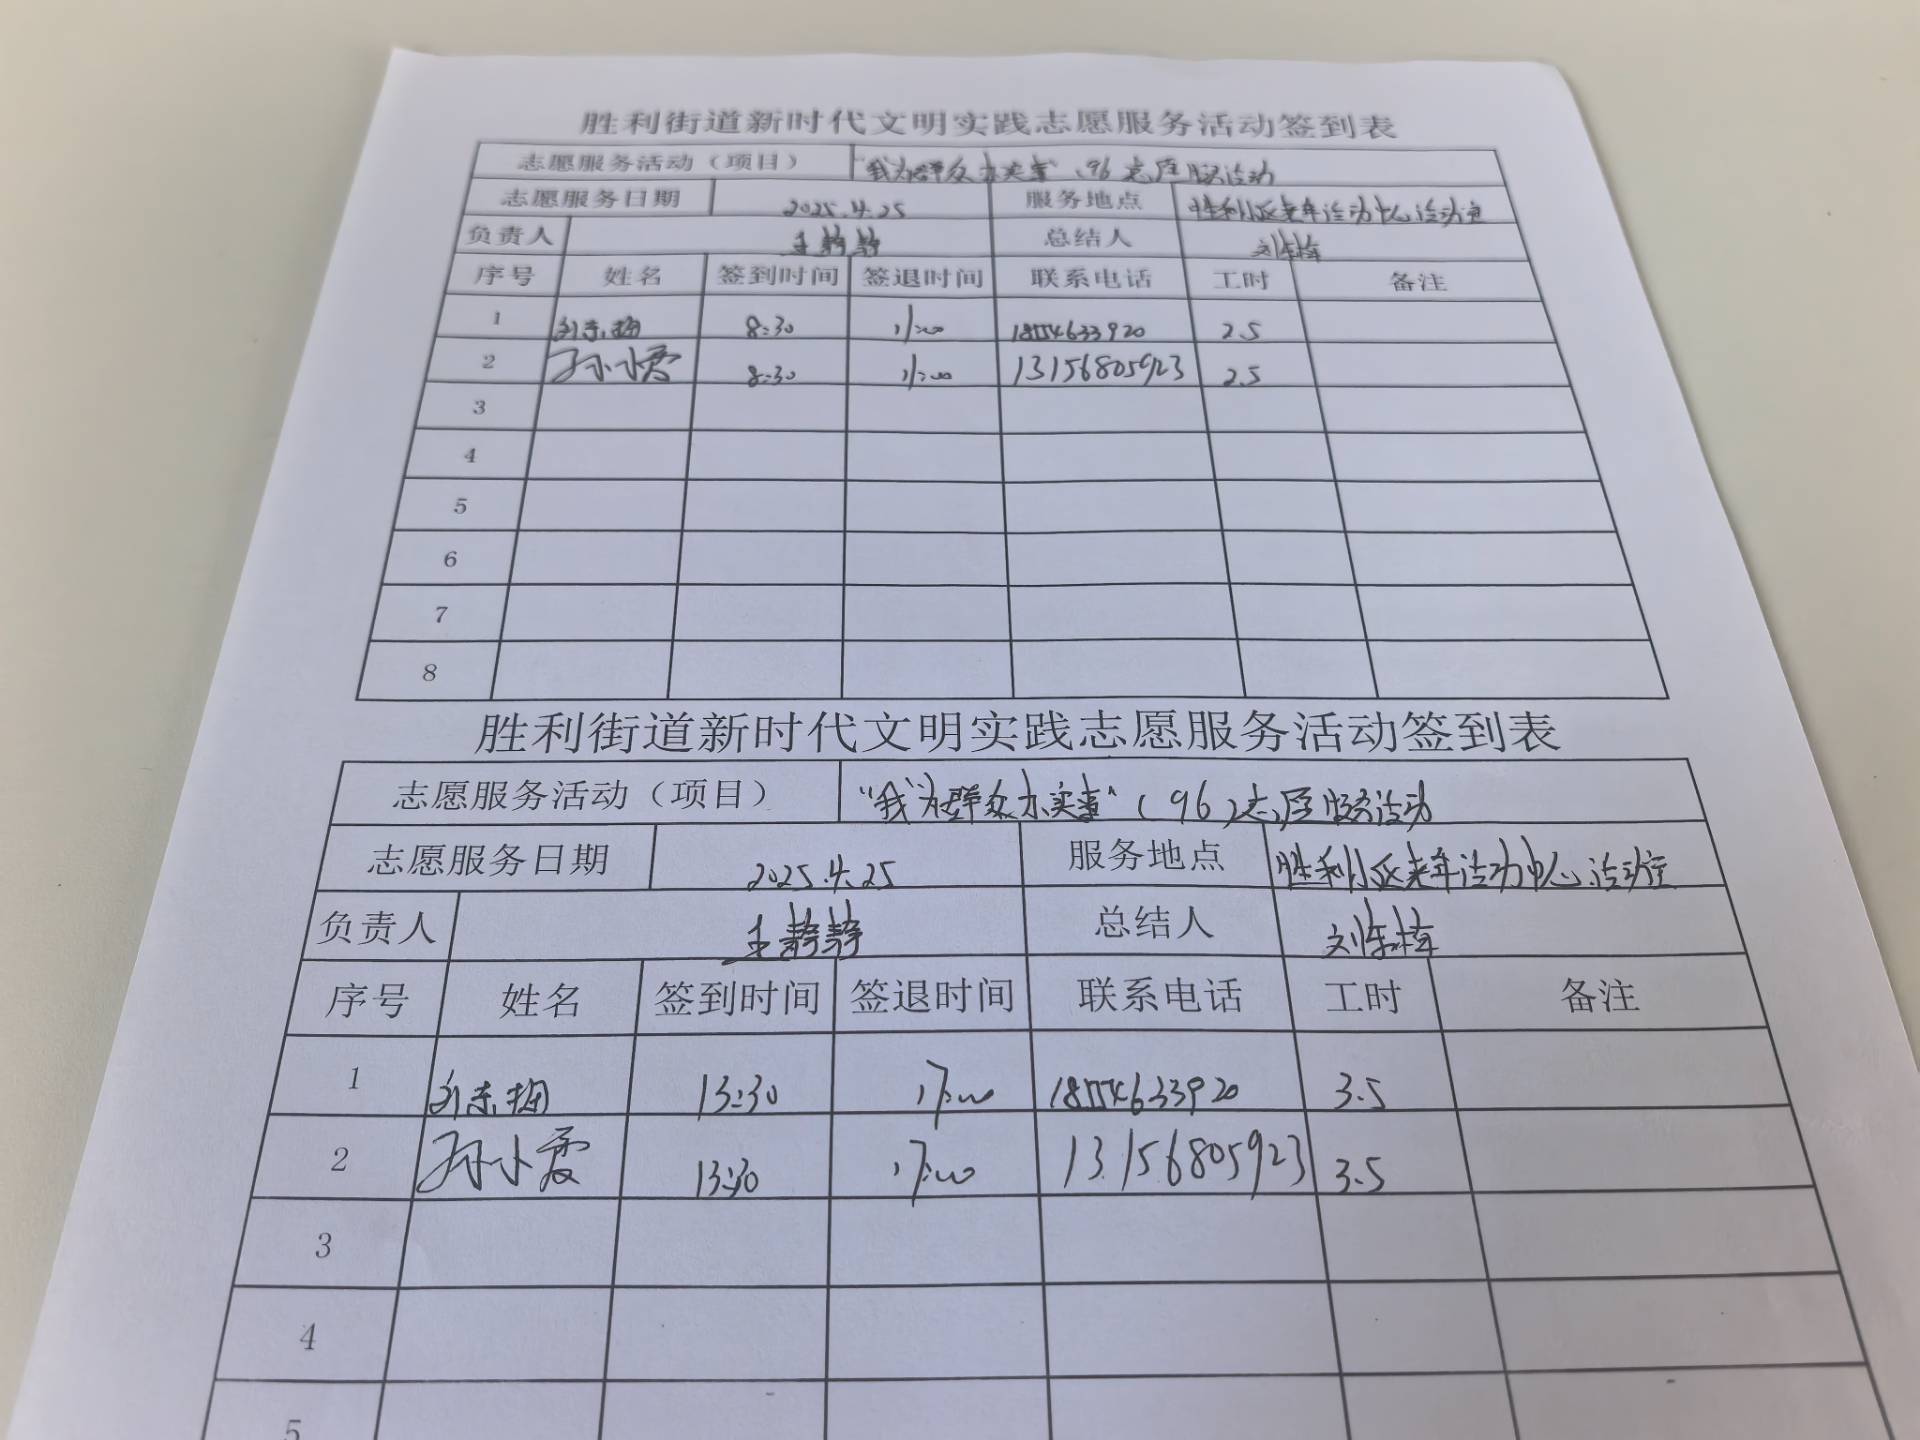 胜利街道新时代文明实践志愿服务活动签到表
志愿服务活动（项目） “我为群众办实事”（96）志愿服务活动
志愿服务日期 2025.4.25 服务地点 胜利小区老年活动中心活动室
负责人 王静静 总结人 刘东梅
序号 姓名 签到时间 签退时间 联系电话 工时 备注
1 刘东梅 8:30 11:00 2.5
2 孙小霞 8:30 11:00 13156805923 2.5
3
4
5
6
7
8
胜利街道新时代文明实践志愿服务活动签到表
志愿服务活动（项目） “我为群众办实事”（96）志愿服务活动
志愿服务日期 2025.4.25 服务地点 胜利小区老年活动中心活动室
负责人 王静静 总结人 刘东梅
序号 姓名 签到时间 签退时间 联系电话 工时 备注
1 刘东梅 13:30 17:00 3.5
2 孙小霞 13:30 17:00 13156805923 3.5
3
4
5